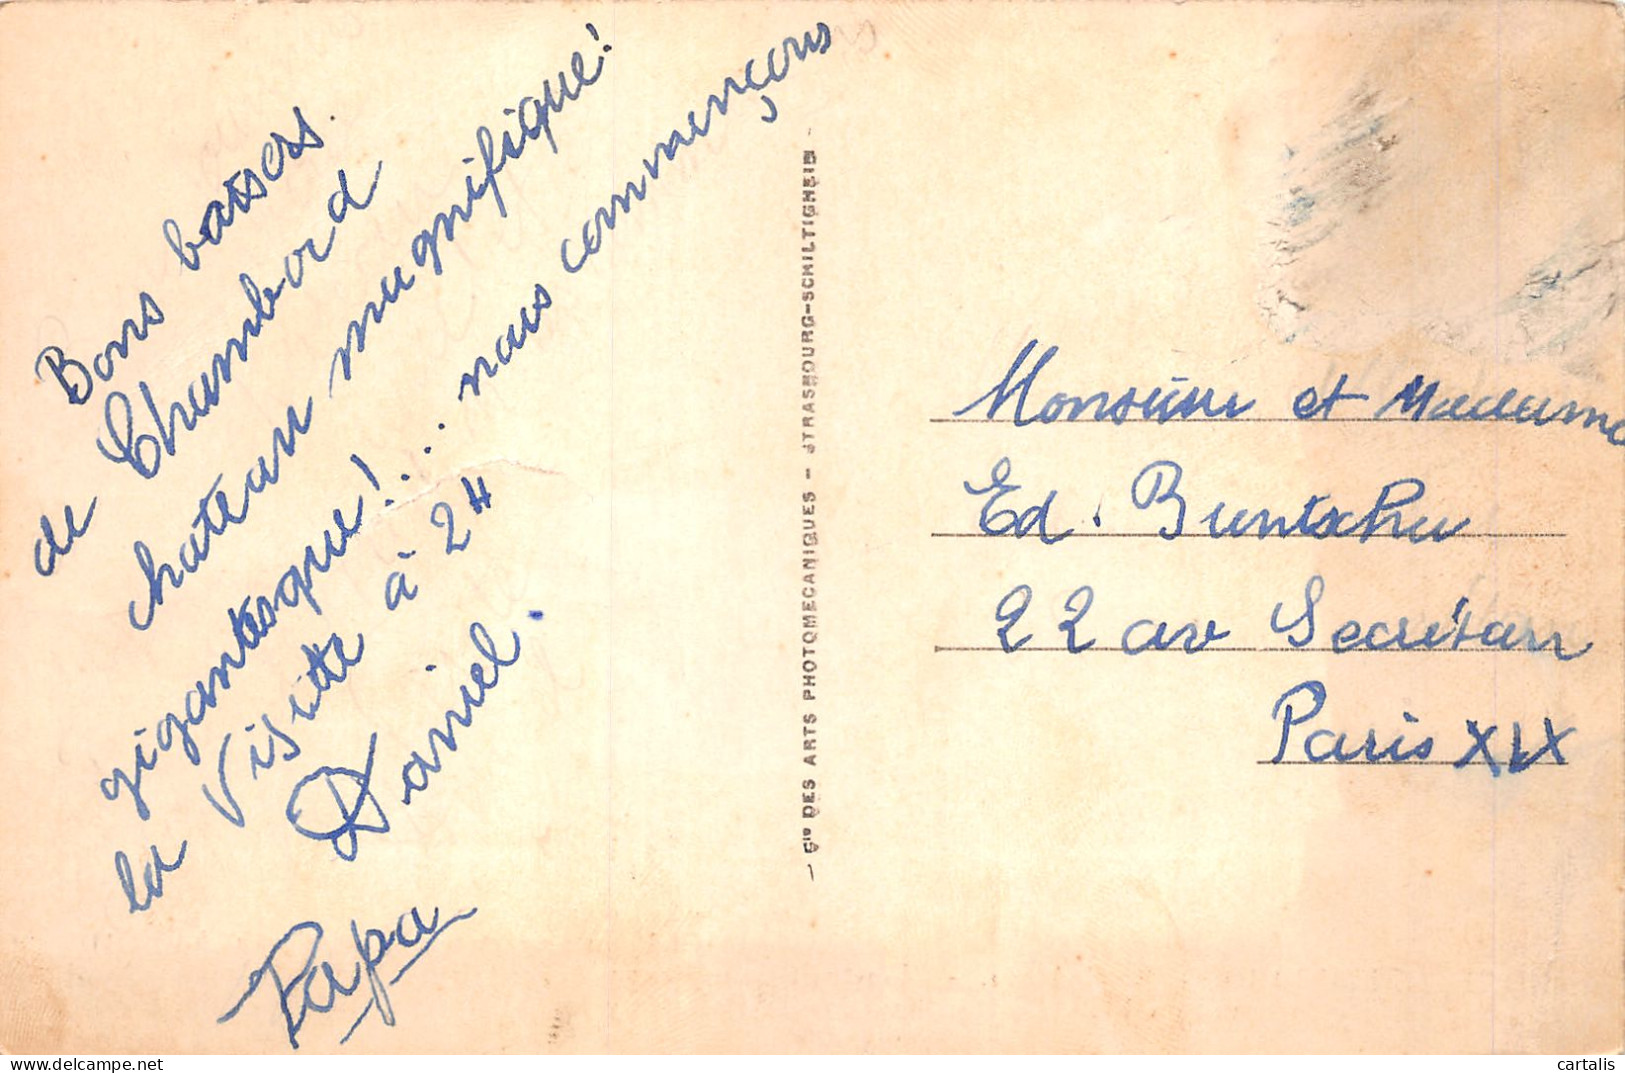 Bons baisers.
de Chambord
chateau magnifique!
gigantesque!... nous commençons
la Visitte à 2H
Daniel.
Papa
- Cie DES ARTS PHOTOMECANIQUES - STRASBOURG-SCHILTIGHEIM -
Monsieur et Madame
Ed. Buntschu
22 av Secrétan
Paris XIX
cartalis